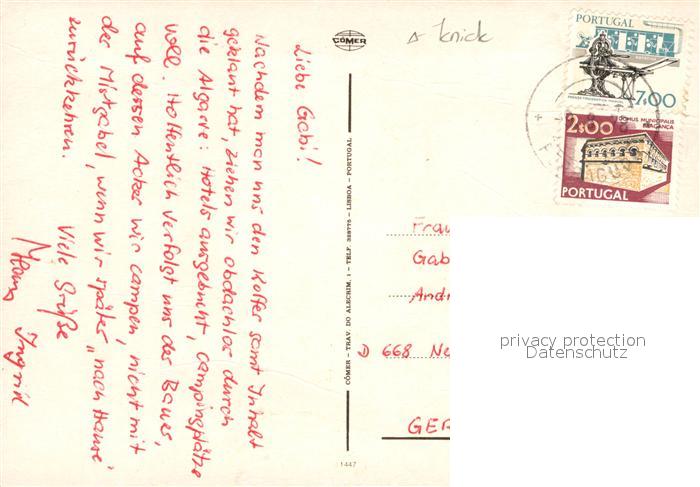 Liebe Gabi!
Nachdem man uns den Koffer samt Inhalt
geklaut hat, ziehen wir obdachlos durch
die Algarve: Hotels ausgebucht, Campingplätze
voll. Hoffentlich verfolgt uns der Bauer,
auf dessen Acker wir campen, nicht mit
der Mistgabel, wenn wir später „nach Hause"
zurückkehren.
Viele Grüße
Ingrid
CÔMER
CÔMER – TRAV. DO ALECRIM, 1 – TELF. 328775 – LISBOA – PORTUGAL
1447
Knick
PORTUGAL
7$00
2$00
DOMUS MUNICIPALIS
BRAGANÇA
PORTUGAL
Frau
Gab
Andr
D 668 Ne
GER
privacy protection
Datenschutz